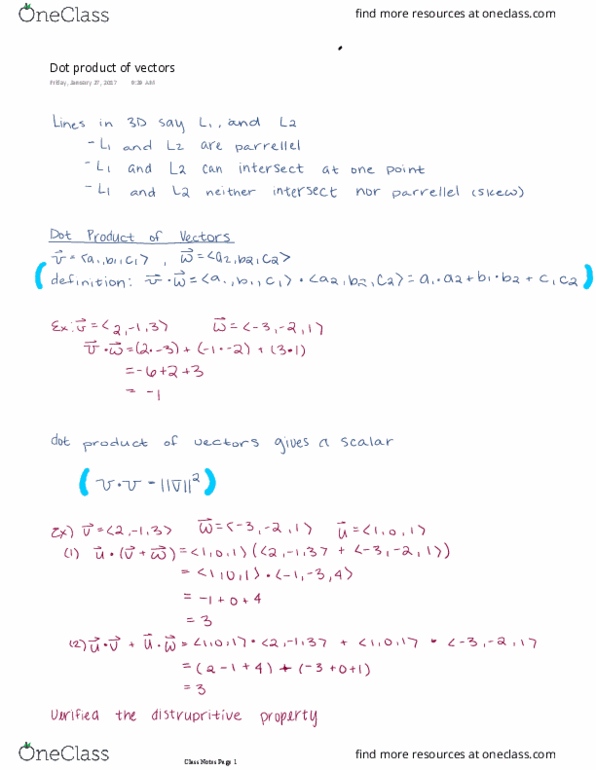 OneClass find more resources at oneclass.com
Dot product of vectors
Friday, January 27, 2017 9:29 AM
Lines in 3D say L₁, and L2
- L₁ and L2 are parrellel
- L₁ and L2 can intersect at one point
- L₁ and L2 neither intersect nor parrellel (skew)
Dot Product of Vectors
v⃗ = <a₁, b₁, c₁> , w⃗ = <a₂, b₂, c₂>
(definition: v⃗ · w⃗ = <a₁, b₁, c₁> · <a₂, b₂, c₂> = a₁·a₂ + b₁·b₂ + c₁c₂)
Ex: v⃗ = <2, -1, 3> w⃗ = <-3, -2, 1>
v⃗ · w⃗ = (2·-3) + (-1·-2) + (3·1)
= -6 + 2 + 3
= -1
dot product of vectors gives a scalar
(v · v = ||v||²)
Ex) v⃗ = <2, -1, 3> w⃗ = <-3, -2, 1> u⃗ = <1, 0, 1>
(1) u⃗ · (v⃗ + w⃗) = <1, 0, 1> (<2, -1, 3> + <-3, -2, 1>)
= <1, 0, 1> · <-1, -3, 4>
= -1 + 0 + 4
= 3
(2) u⃗ · v⃗ + u⃗ · w⃗ = <1, 0, 1> · <2, -1, 3> + <1, 0, 1> · <-3, -2, 1>
= (2 - 1 + 4) + (-3 + 0 + 1)
= 3
Verified the distrupritive property
OneClass Class Notes Page 1 find more resources at oneclass.com